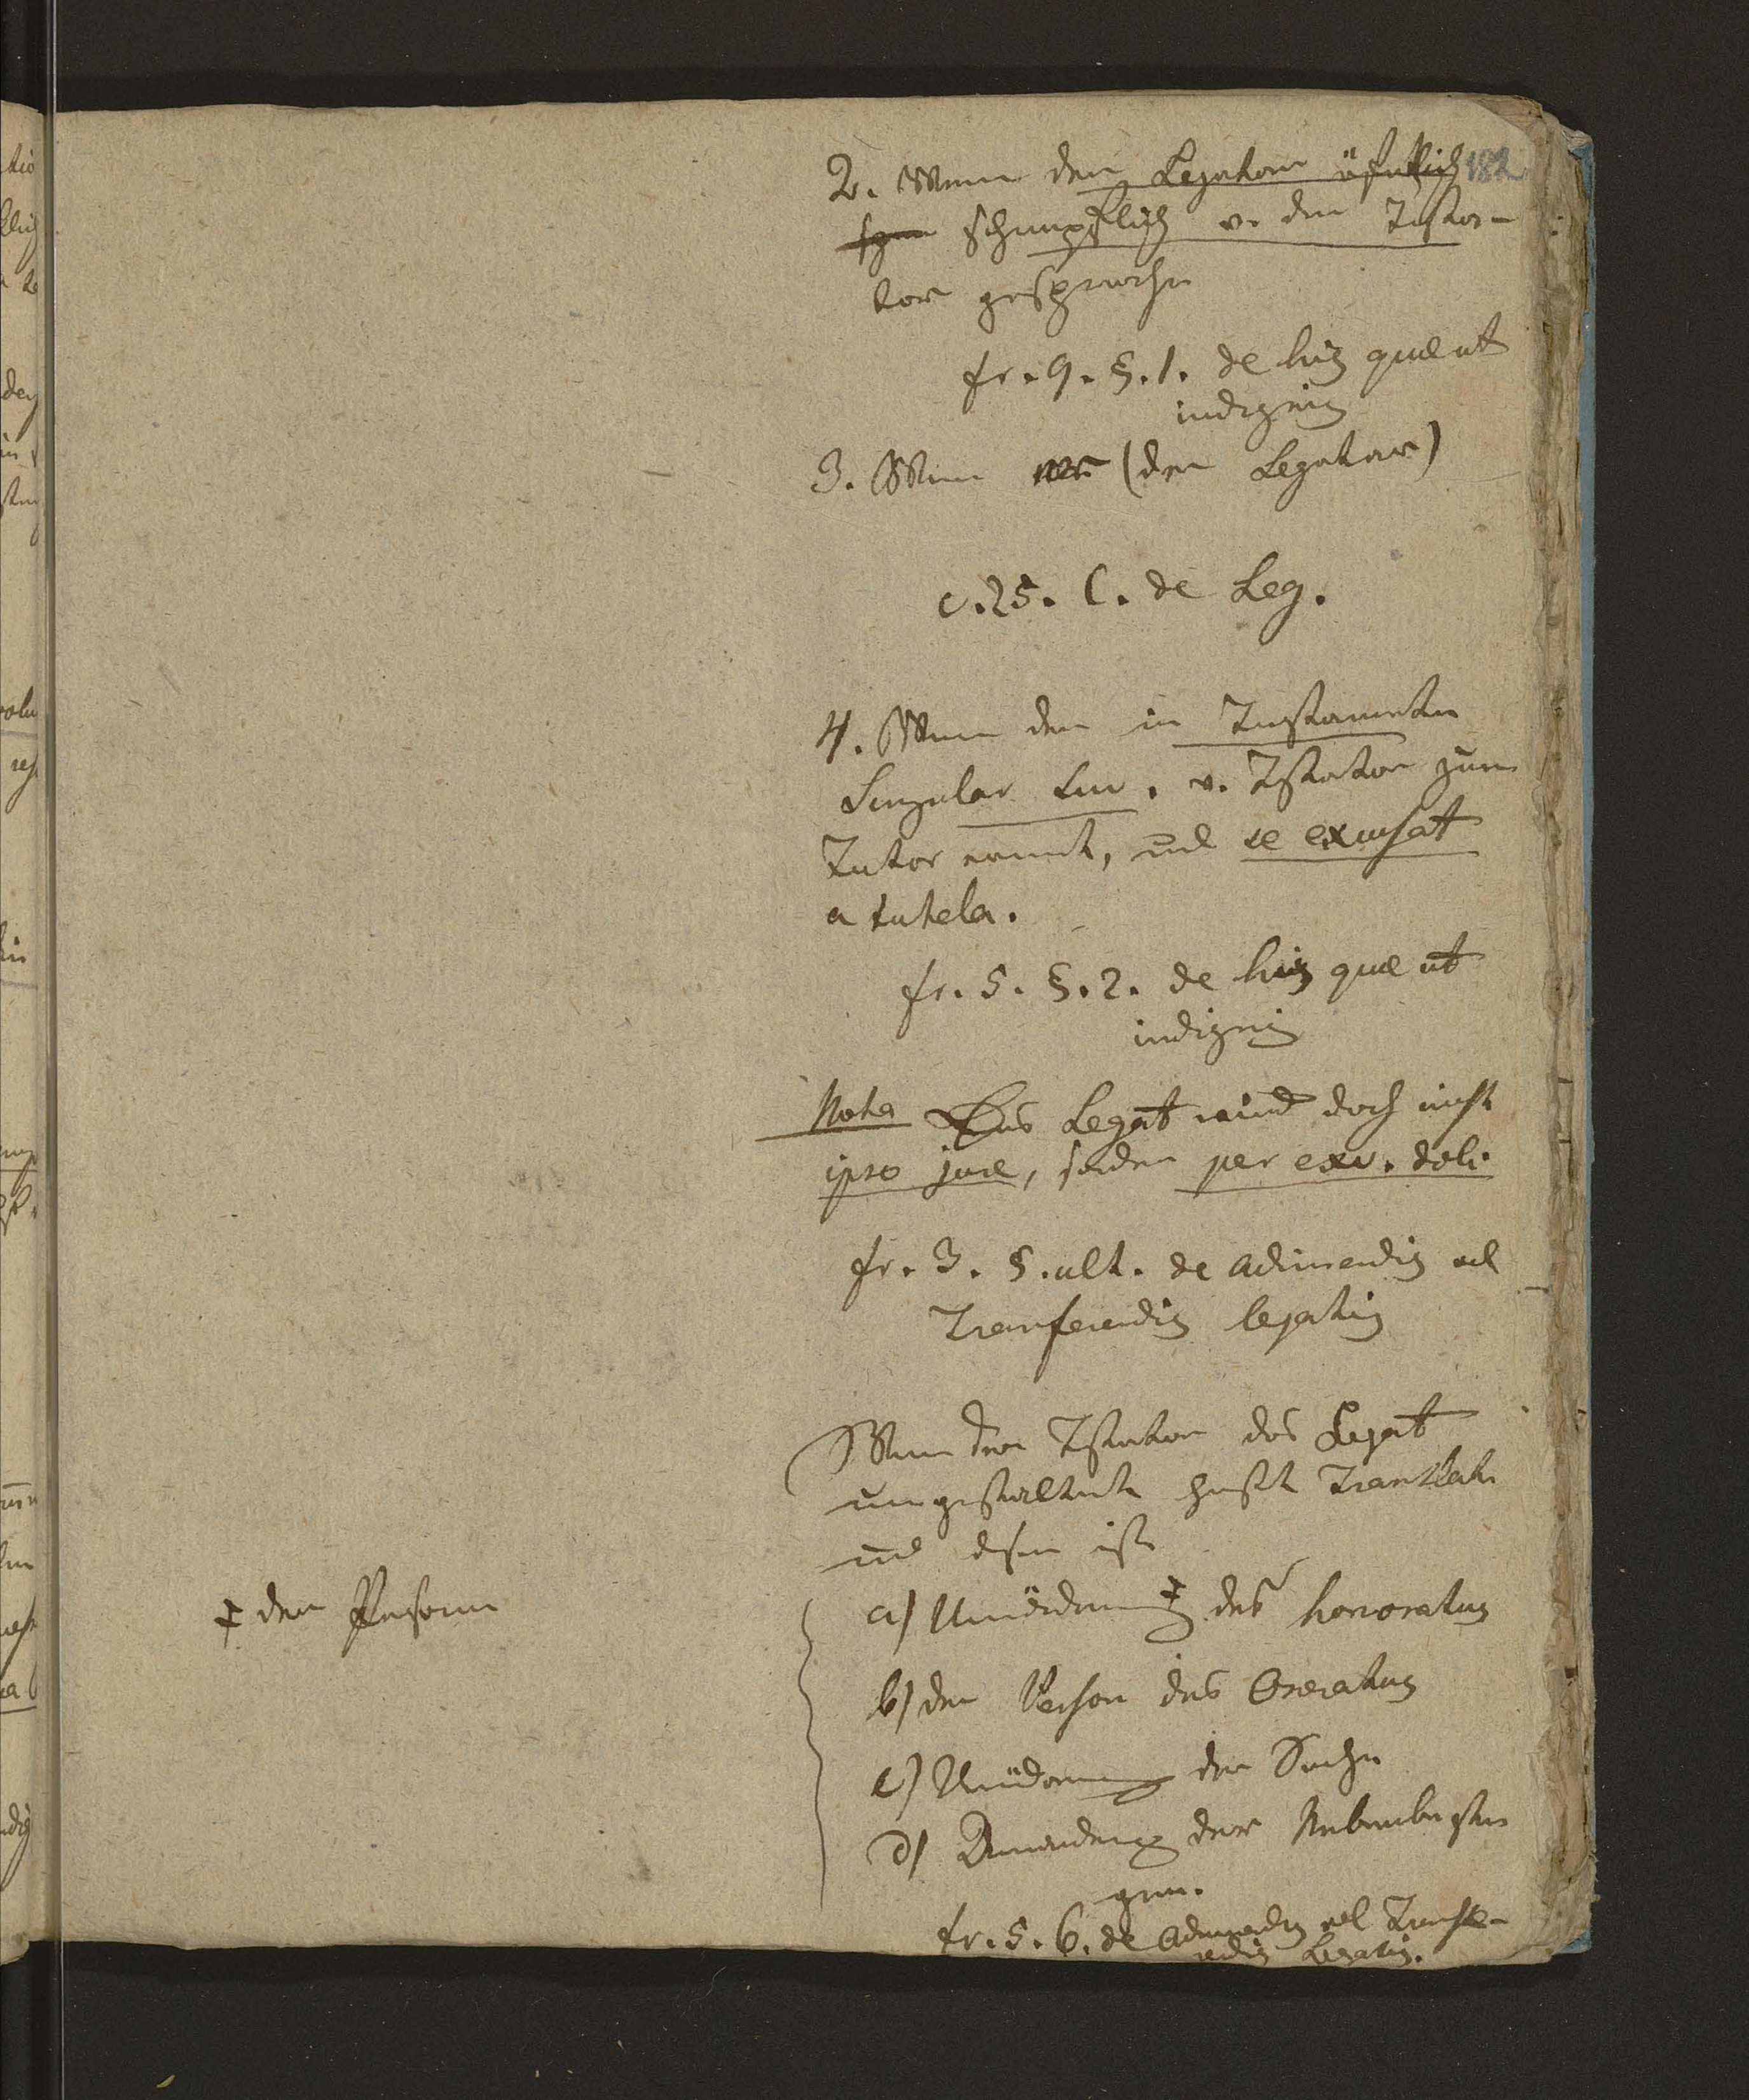 182
2. Wenn der Legatar öfentlich
schimpflich v. dem Testa-
tor gesprochen
fr. 9. §. 1. de his quae ut
indignis
3. Wenn (der Legatar)
c. 25. C. de Leg.
4. Wenn der in Testamente
Singular Suc. v. Testator zum
Tutor ernnt, und se excusat
a tutela.
fr. 5. §. 2. de his quae ut
indignis
Nota Das Legat wird doch nicht
ipso jure, sondern per exc. doli
fr. 3. §. ult. de adimendis vel
Transferendis legatis
Wenn der Testator das Legat
umgestaltet heißt Translati
und diese ist
a) Umänderung ‡ des honoratus
‡ der Person
b) der Person des Oneratus
c) Änderung der Sache
d) der Nebenbestim
gen.
fr. 5. 6. de Adimendis vel Transfe-
rendis Legatis.